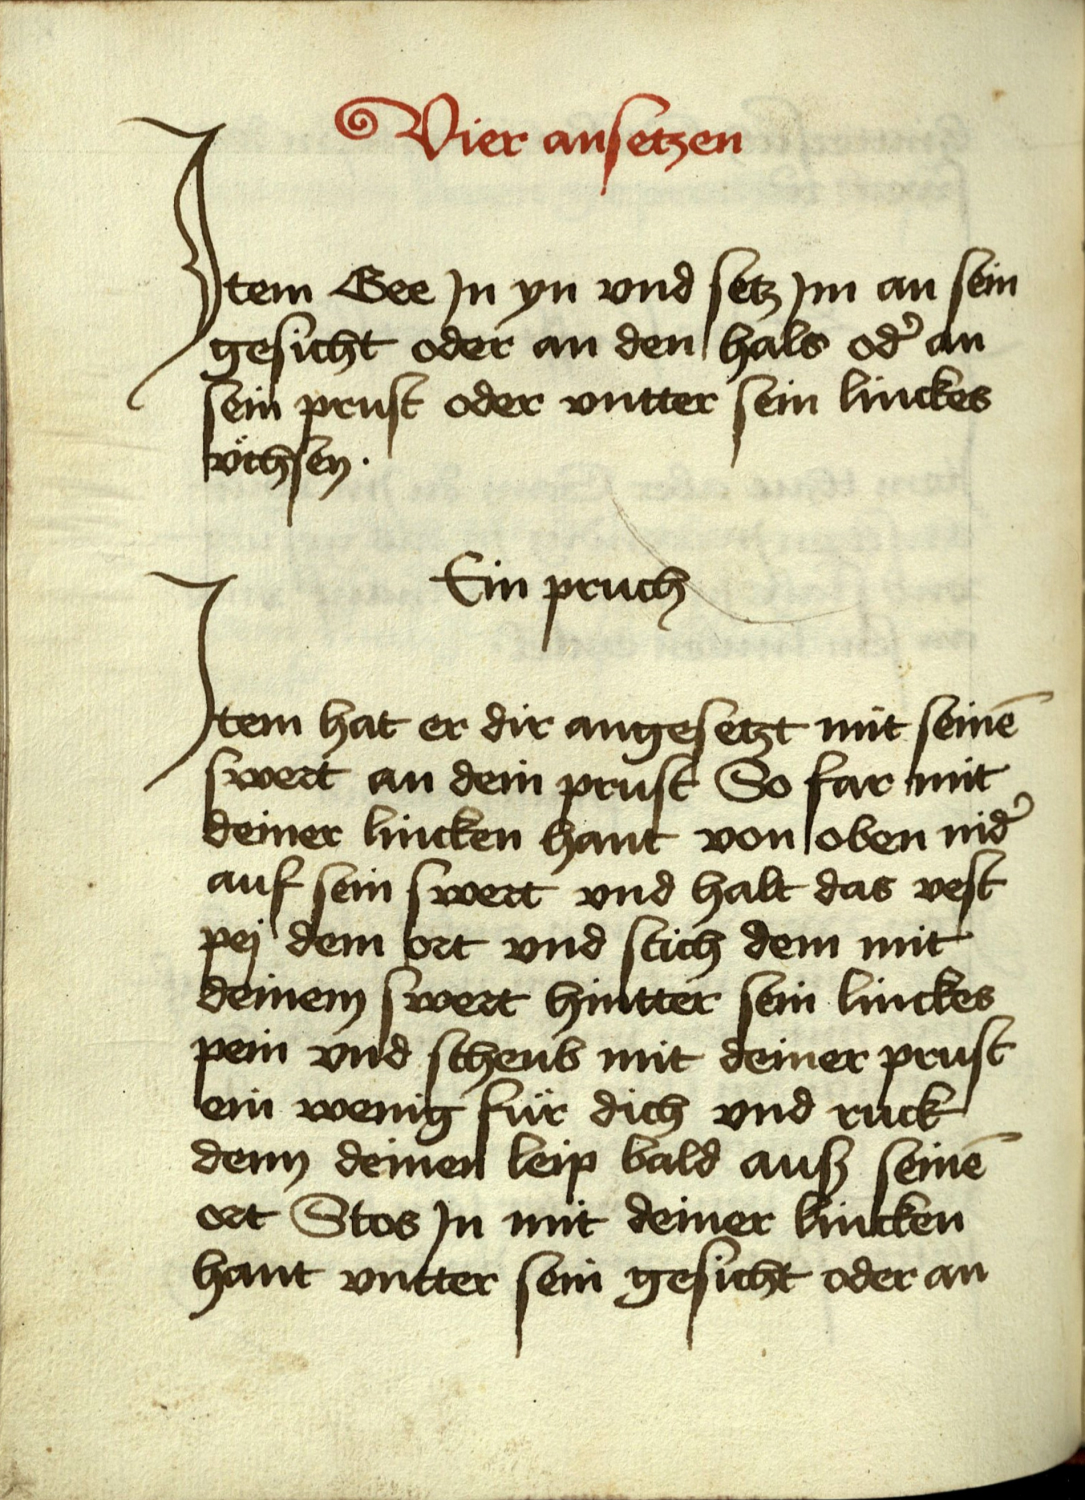 Vier ansetzen
Item Gee Jn yn vnd setz Jm an sein
gesicht oder an den hals od̕ an
sein prust oder vntter sein linckes
v̈chsen.
Ein pruch
Item hat er dir angesetzt mit seinē
swert an dein prust So far mit
deiner lincken hant von oben nid̕
auf sein swert vnd halt das vest
pej dem ort vnd stich dem mit
deinem swert hintter sein linckes
pein vnd scheub mit deiner prust
ein wenig für dich vnd ruck
denn deinen leip bald auß seinē
ort Stos Jn mit deiner lincken
hant vntter sein gesicht oder an